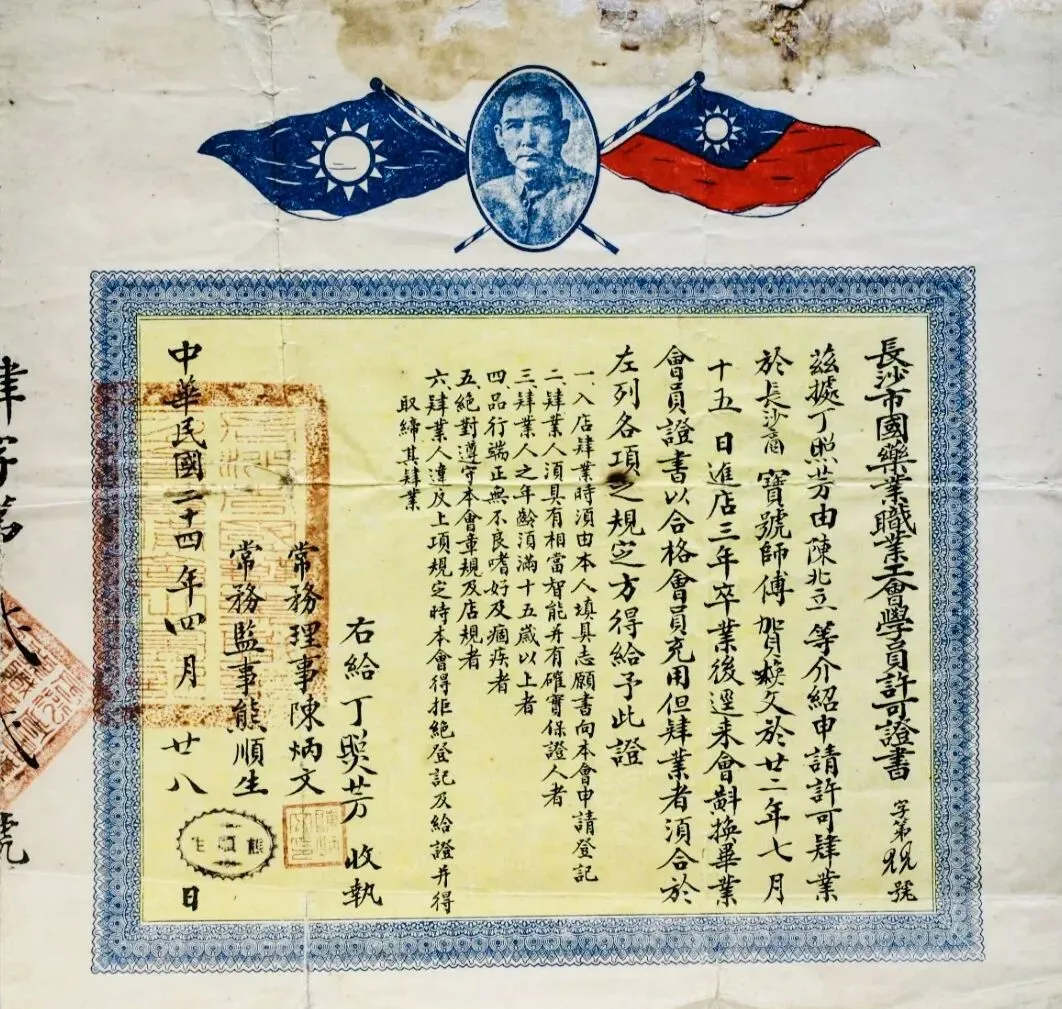 長沙市國藥業職業工會學員許可證書 字第 號
茲據丁照芳由陳北立等介紹申請許可肆業
於長沙 寶號師傅賀 文於廿二年七月
十五日進店三年卒業後逕來會斟換畢業
會員證書以合格會員充用但肆業者須合於
左列各項之規定方得給予此證
一、入店肆業時須由本人填具志願書向本會申請登記
二、肆業人須具有相當智能并有確實保證人者
三、肆業人之年齡須滿十五歲以上者
四、品行端正無不良嗜好及痼疾者
五、絕對遵守本會章規及店規者
六、肆業人違反上項規定時本會得拒絕登記及給證并得
取締其肆業
右給丁照芳收執
常務理事陳炳文
常務監事熊順生
熊順生
中華民國二十四年四月廿八日
肆字第 號